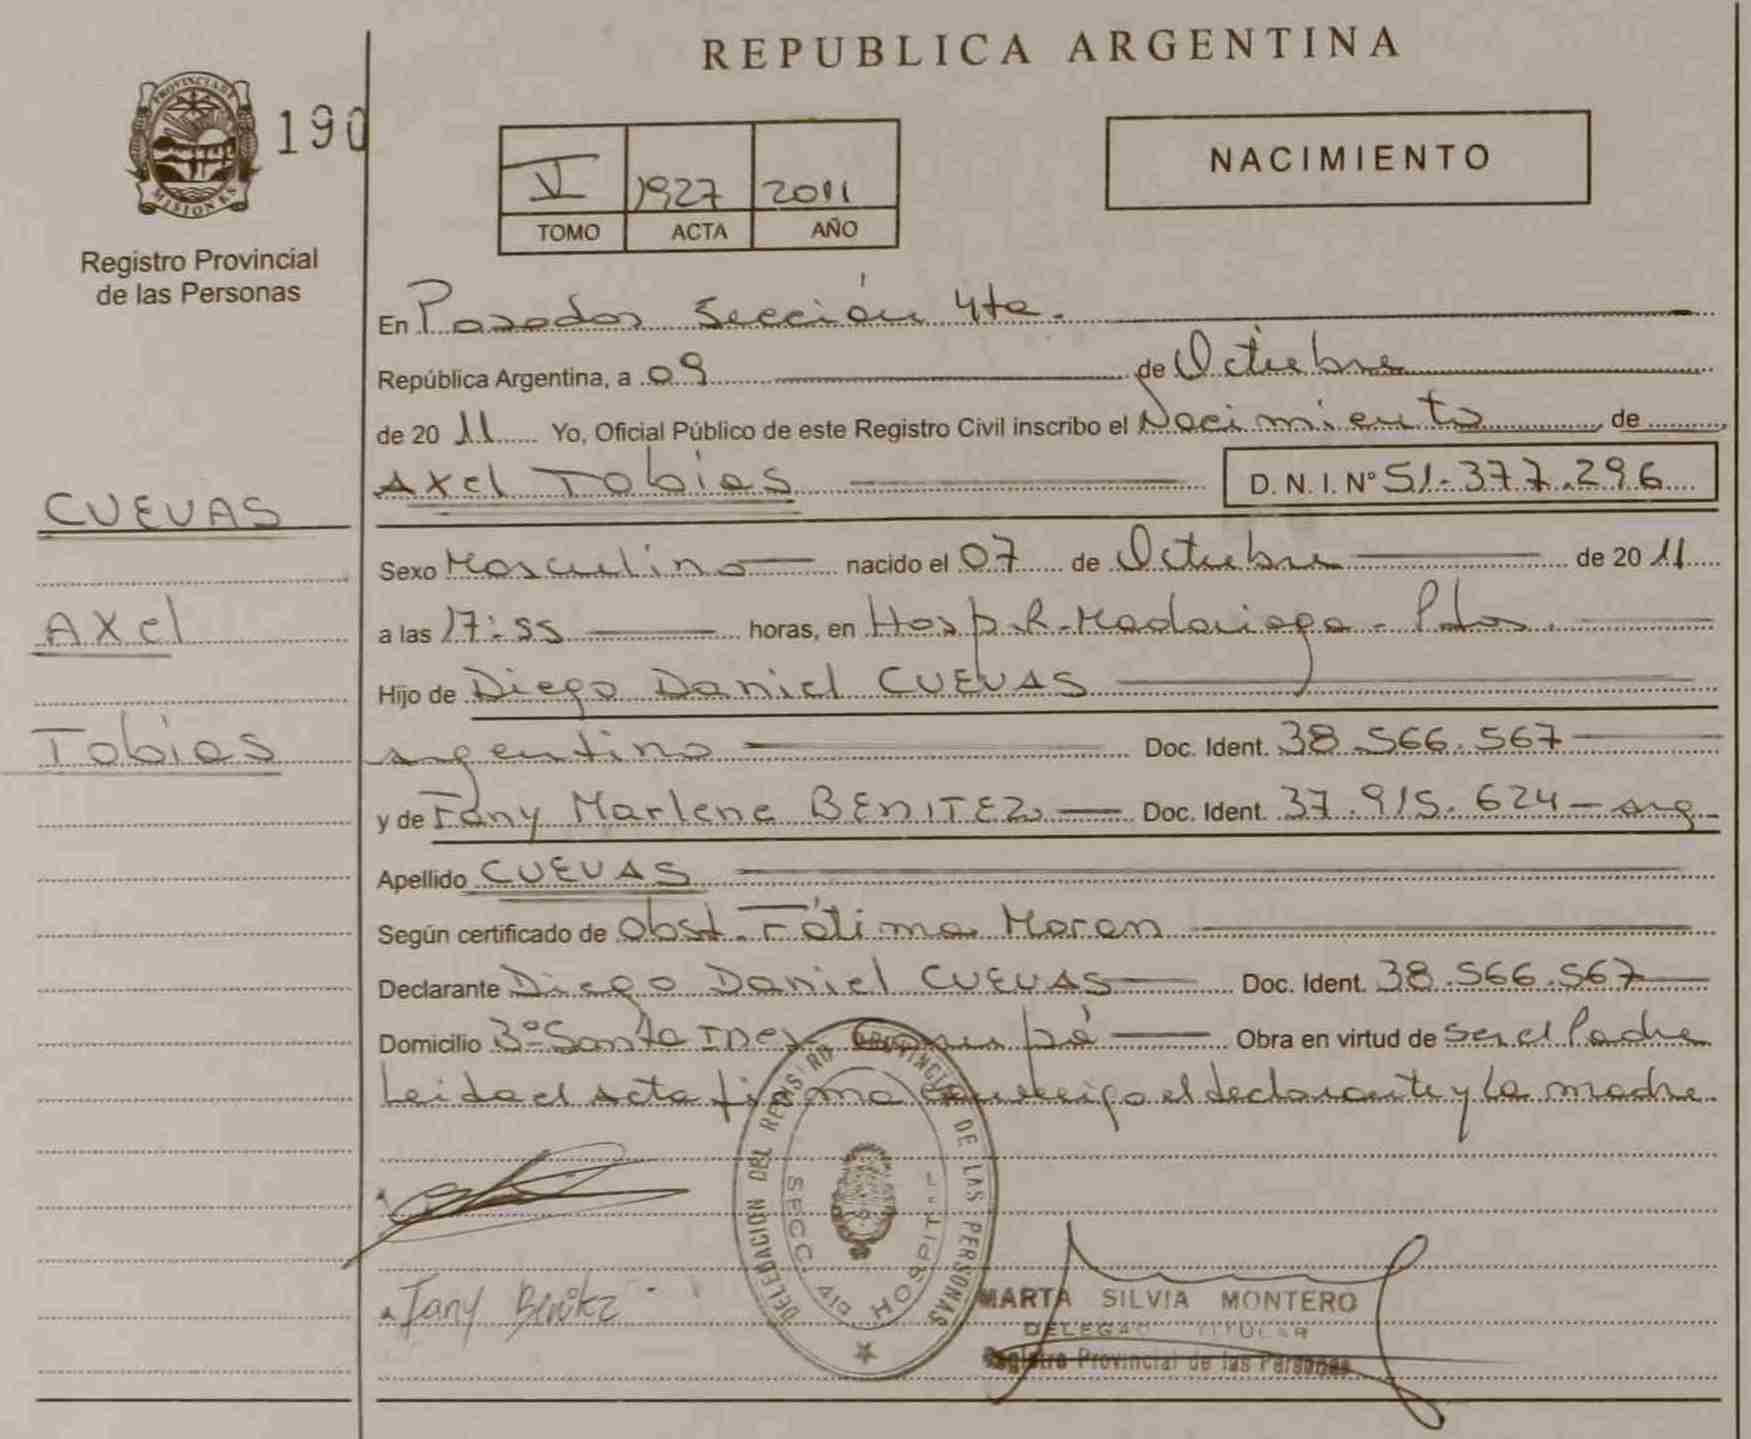 REPUBLICA ARGENTINA
PROVINCIA DE MISIONES
190
Registro Provincial
de las Personas
V 1927 2011
TOMO ACTA AÑO
NACIMIENTO
En Posadas Sección 4ta.
República Argentina, a 09 de Octubre
de 2011 Yo, Oficial Público de este Registro Civil inscribo el Nacimiento de
Axel Tobias D.N.I. Nº 51.377.296
CUEVAS
Axel
Tobias
Sexo Masculino nacido el 07 de Octubre de 2011
a las 17:55 horas, en Hosp. R. Madariaga - Pdas.
Hijo de Diego Daniel CUEVAS
argentino Doc. Ident. 38.566.567
y de Fany Marlene BENITEZ Doc. Ident. 37.915.624 - arg
Apellido CUEVAS
Según certificado de Obst. Fátima Moran
Declarante Diego Daniel CUEVAS Doc. Ident. 38.566.567
Domicilio Bº Santa Ines Obra en virtud de ser el Padre
Leida el acta firma conmigo el declarante y la madre
Fany Benitez
DELEGACION DEL REGISTRO PROVINCIAL DE LAS PERSONAS
SECC. 4ta HOSPITAL
MARTA SILVIA MONTERO
DELEGADA TITULAR
Registro Provincial de las Personas